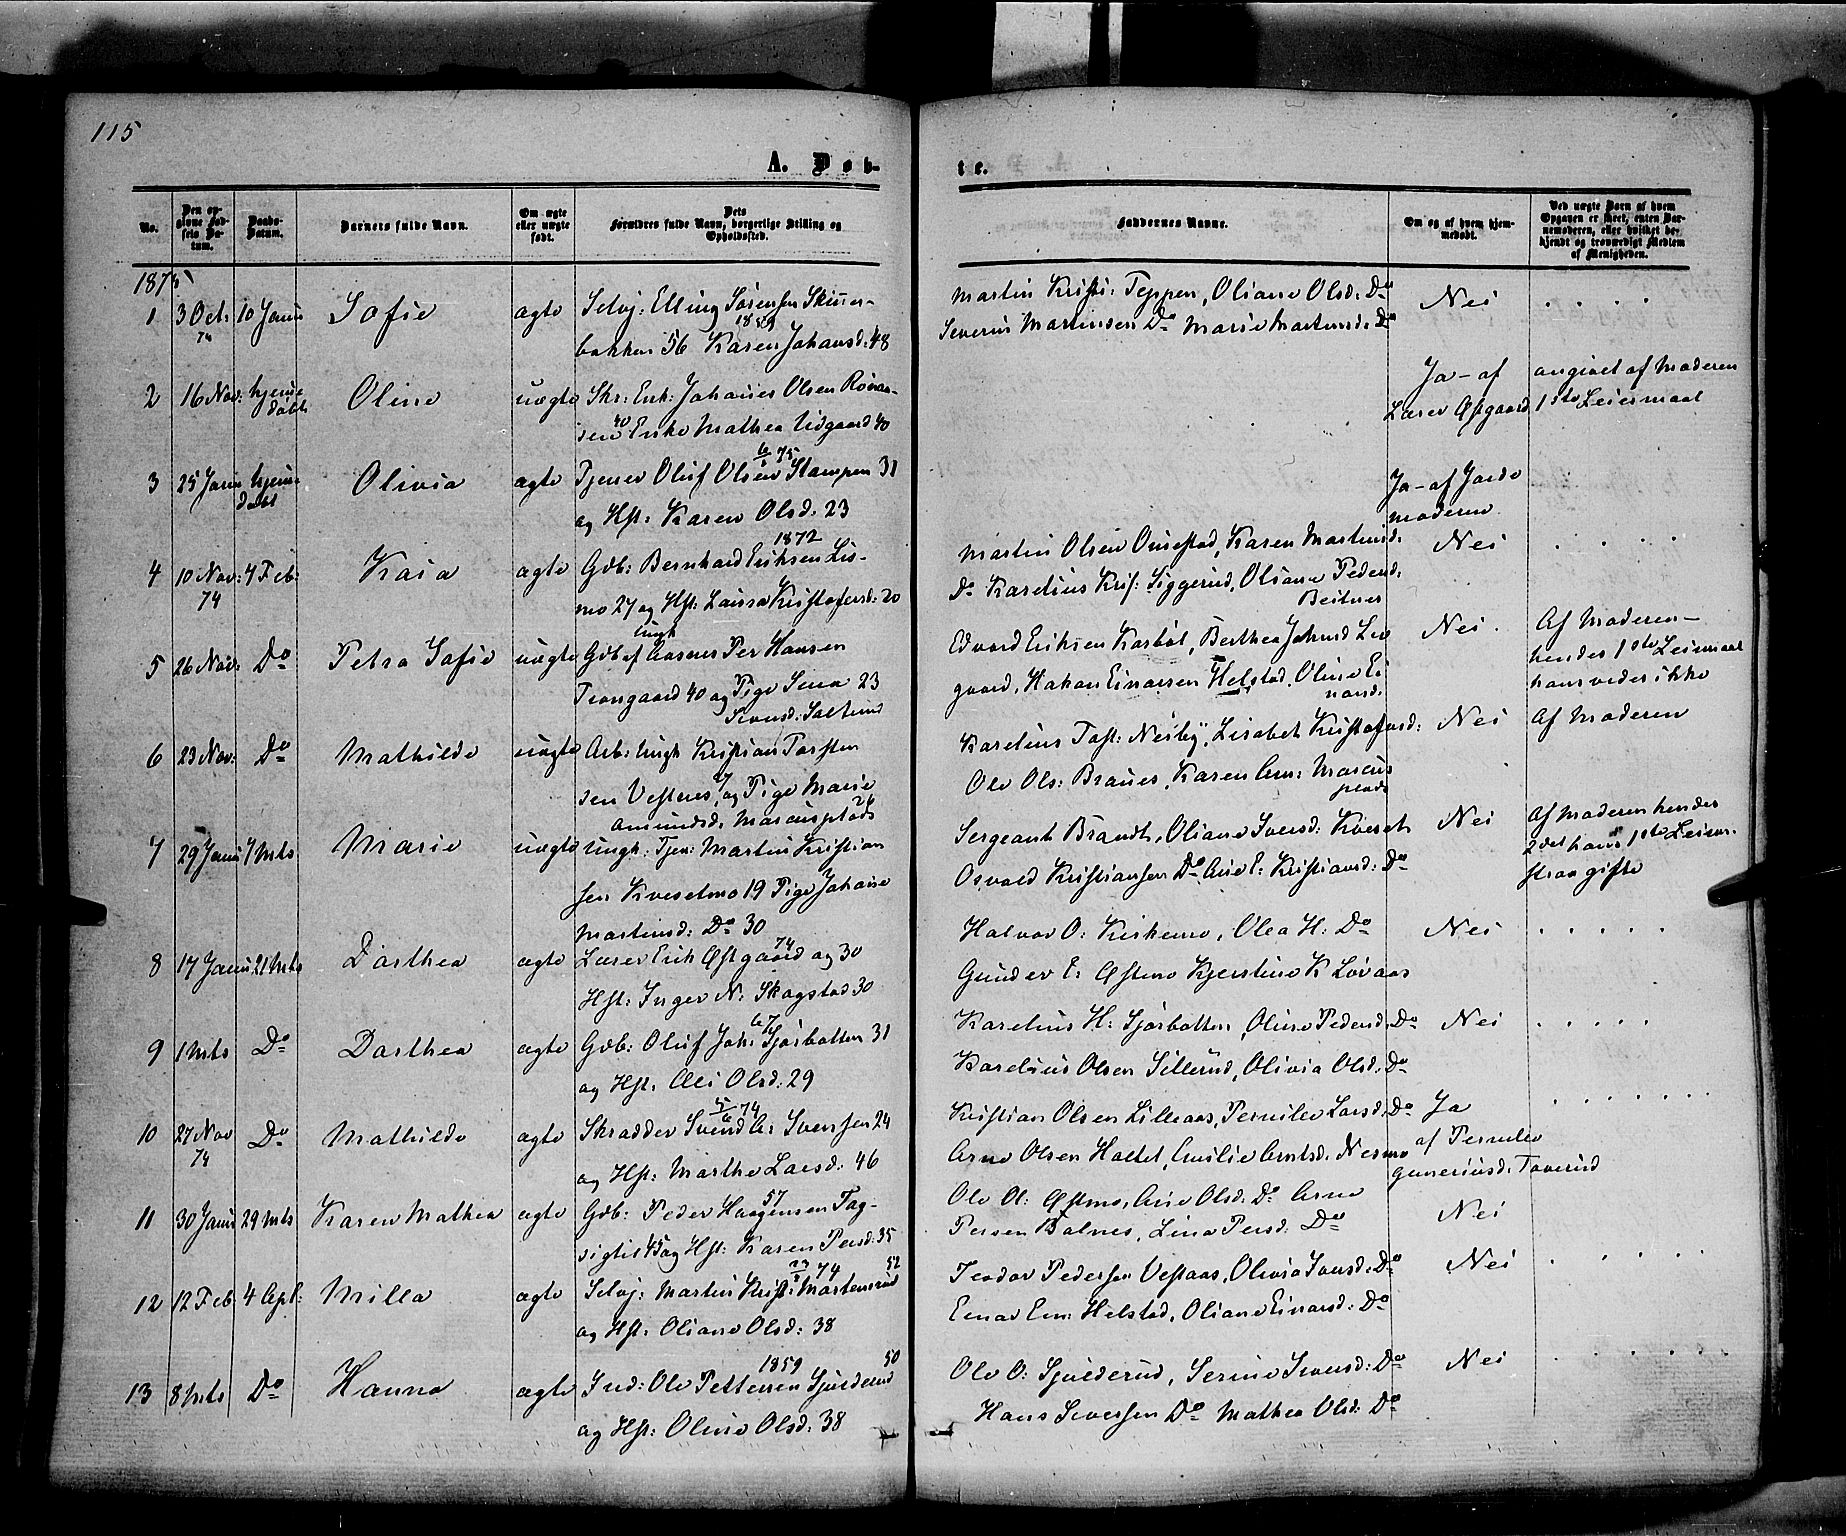 115
A. Døb-
te.
No.
Den opgivne Fødsels Datum.
Daabs-Datum.
Barnets fulde Navn.
Om ægte eller uægte født.
Dets Forældres fulde Navn, borgerlige Stilling og Opholdssted.
Faddernes Navne.
Om og af hvem hjemmedøbt.
Ved uægte Barn af hvem Opgaven er skeet, enten Barnemoderen, eller hvilket bekjendt og troværdigt Medlem af Menigheden.
1875
1 3 Oct: 74 10 Janu Sofie ægte Selvj: Elling Sørensen Skinner-
1859
bakken 56 Karen Johansd: 48
Martin Kristi: Teppen, Oliane Olsd: Do Nei
Severin Martinsen Do Marie Martinsd: Do
2 16 Nov: hjemedøbt Oline uægte Skr: Enk: Johanes Olsen
40 Enke Mathea Udgaard 40
Ja - af Lærer Østgaard
angivet af Moderen
1ste Leiermaal
3 25 Janu hjemedøbt Olivia ægte Tjener Oluf Olsen Stampen 31
6/1 75
og Hst: Karen Olsd: 23
Ja - af Jordemoderen
4 10 Nov: 74 4 Feb: Kaia ægte Gdb: Bernhard Eriksen Lis-
1872
mo 27 og Hst: Laura Kristofersd: 20
Martin Olsen Onsestad, Karen Martinsd: Nei
Do Karelius Kris: Siggerud, Oliane Pedersd:
5 26 Nov: Do Petra Sofie uægte Ungk Gdb af Aasnes Per Hansen
Trongaard 40 og Pige Sena 23
Edvard Eriksen Karbøl, Berthea Johnsd
gaard, Hakon Einarsen Helstad, Oline Ei
narsd:
Nei.
Af Moderen -
hendes 1ste Leiermaal
hans vides ikke
6 23 Nov: Do Mathilde uægte Arb: Ungk Kristian Torsten
sen Vestnes, 27 og Pige Marie
Amundsd. Marcusplads 26
Karelius Tost: Neiby, Lisabet Kristofersd: Nei Af Moderen
Ole Ols: Branes, Karen Am: Marcus
plads
7 29 Janu 7 Mts Marie uægte Ungk: Tjen: Martin Kristian
sen Kvesetmo 19 Pige Johane
Martinsd: Do 30
Sergeant Brandt, Oliane Iversd: Kveset Nei
Osvald Kristiansen Do Ane E: Kristiansd: Do
Af Moderen hendes
2det hans 1ste Leierm.
straa gifte
8 17 Janu 21 Mts Dorthea ægte Lærer Erik Østgaard og 30
74
Hst: Inger N: Skogstad 30
Halvor O: Kirkemo, Olea H: Do Nei
Gunder E: Østmo Kjerstine K Løvaas
9 1 Mts Do Dorthea ægte Gdb: Oluf Joh: Sjørbotten 31
67
og Hst. Eli Olsd: 29
Karelius H: Sjørbotten, Oline Pedersd. Do Nei
Karelius Olsen Sillerud, Olivia Olsd. Do
10 27 Nov 74 Do Mathilde ægte Skrædder Svend A: Svensen 24
5/6 74
og Hst: Marthe Larsd: 46
Kristian Olsen Lilleaas, Pernille Larsd. Do
Arne Olsen Holtet, Emilie Arntsd. Nesmo
Ja af Pernille Guneriusd. Tøverud
11 30 Janu 29 Mts Karen Mathea ægte Gdb: Peder Haagensen Fag-
57
sigtil 45 og Hst: Karen Persd: 35
Ole O: Østmo, Ane Olsd: Do Arne
Persen Balnes, Lina Persd: Do Nei
12 12 Feb 4 Apl: Milla ægte Selvj: Martin Krist: Mortensrud 52
74
og Hst: Oliane Olsd: 38
Teodor Pedersen Vestaas, Olivia Iversd. Do Nei
Einar Ein: Helstad, Oliane Einarsd: Do
13 8 Mts Do Hanna ægte Ind: Ole Pettersen Sjulderud 50
1859
og Hst: Oline Olsd: 38
Ole O: Sjulderud, Serine Iversd: Do Nei
Hans Seversen Do Mathea Olsd: Do